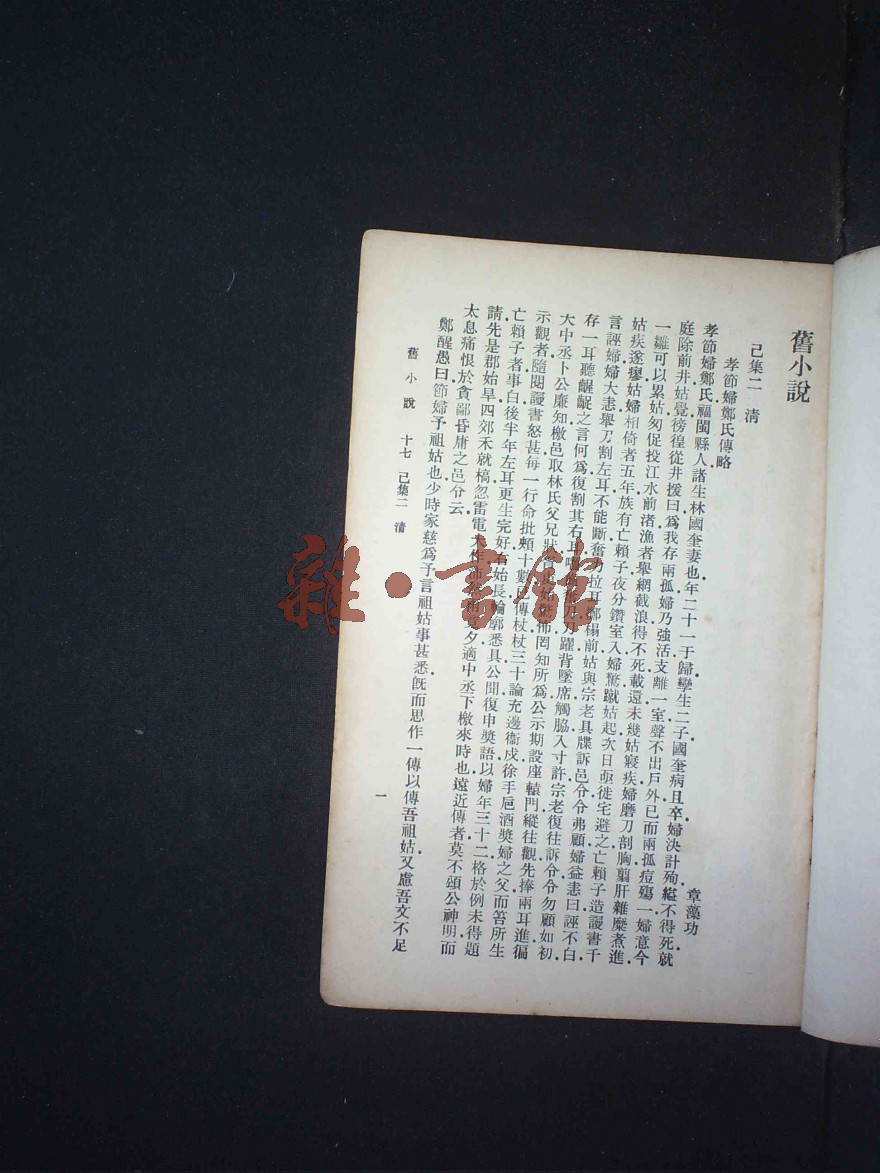 舊小說
己集二 清
孝節婦鄭氏傳略
章藻功
孝節婦鄭氏福閩縣人諸生林國奎妻也年二十一于歸孿生二子國奎病且卒婦決計殉縊不得死就
庭除前井姑覺徬徨從井援曰爲我存兩孤婦乃強活支離一室聲不出戶外已而兩孤痘殤一婦意今
一雛可以累姑匆促投江水前渚漁者舉網截浪得不死載還未幾姑寢疾婦磨刀剖胸翦肝雜糜煮進
姑疾遂瘳姑婦相倚者五年族有亡賴子夜分鑽室入婦驚蹴姑起次日亟徙宅避之亡賴子造謾書千
言誣婦婦大恚舉刀割左耳不能斷奮力拉耳擲榻前姑與宗老具牒訴邑令令弗顧婦益恚曰誣不白
存一耳聽齷齪之言何爲復割其右耳刀躍背墜席觸脇入寸許宗老復往訴令令勿顧如初
大中丞卜公廉知檄邑取林氏父兄狀怖罔知所爲公示期設座轅門縱往觀先捧兩耳進徧
示觀者隨閱謾書怒甚每一行命批頰十數已傳杖杖三十論充邊衞戍徐手巵酒奬婦之父而笞所生
亡賴子者事白後半年左耳更生完好右始長輪郭悉具公聞復申奬語以婦年三十二格於例未得題
請先是郡始旱四郊禾就槁忽雷電大作夕適中丞下檄來時也遠近傳者莫不頌公神明而
太息痛恨於貪鄙昏庸之邑令云
鄭醒愚曰節婦予祖姑也少時家慈爲予言祖姑事甚悉旣而思作一傳以傳吾祖姑又慮吾文不足
舊小說 十七 己集二 清
一
雜·書館